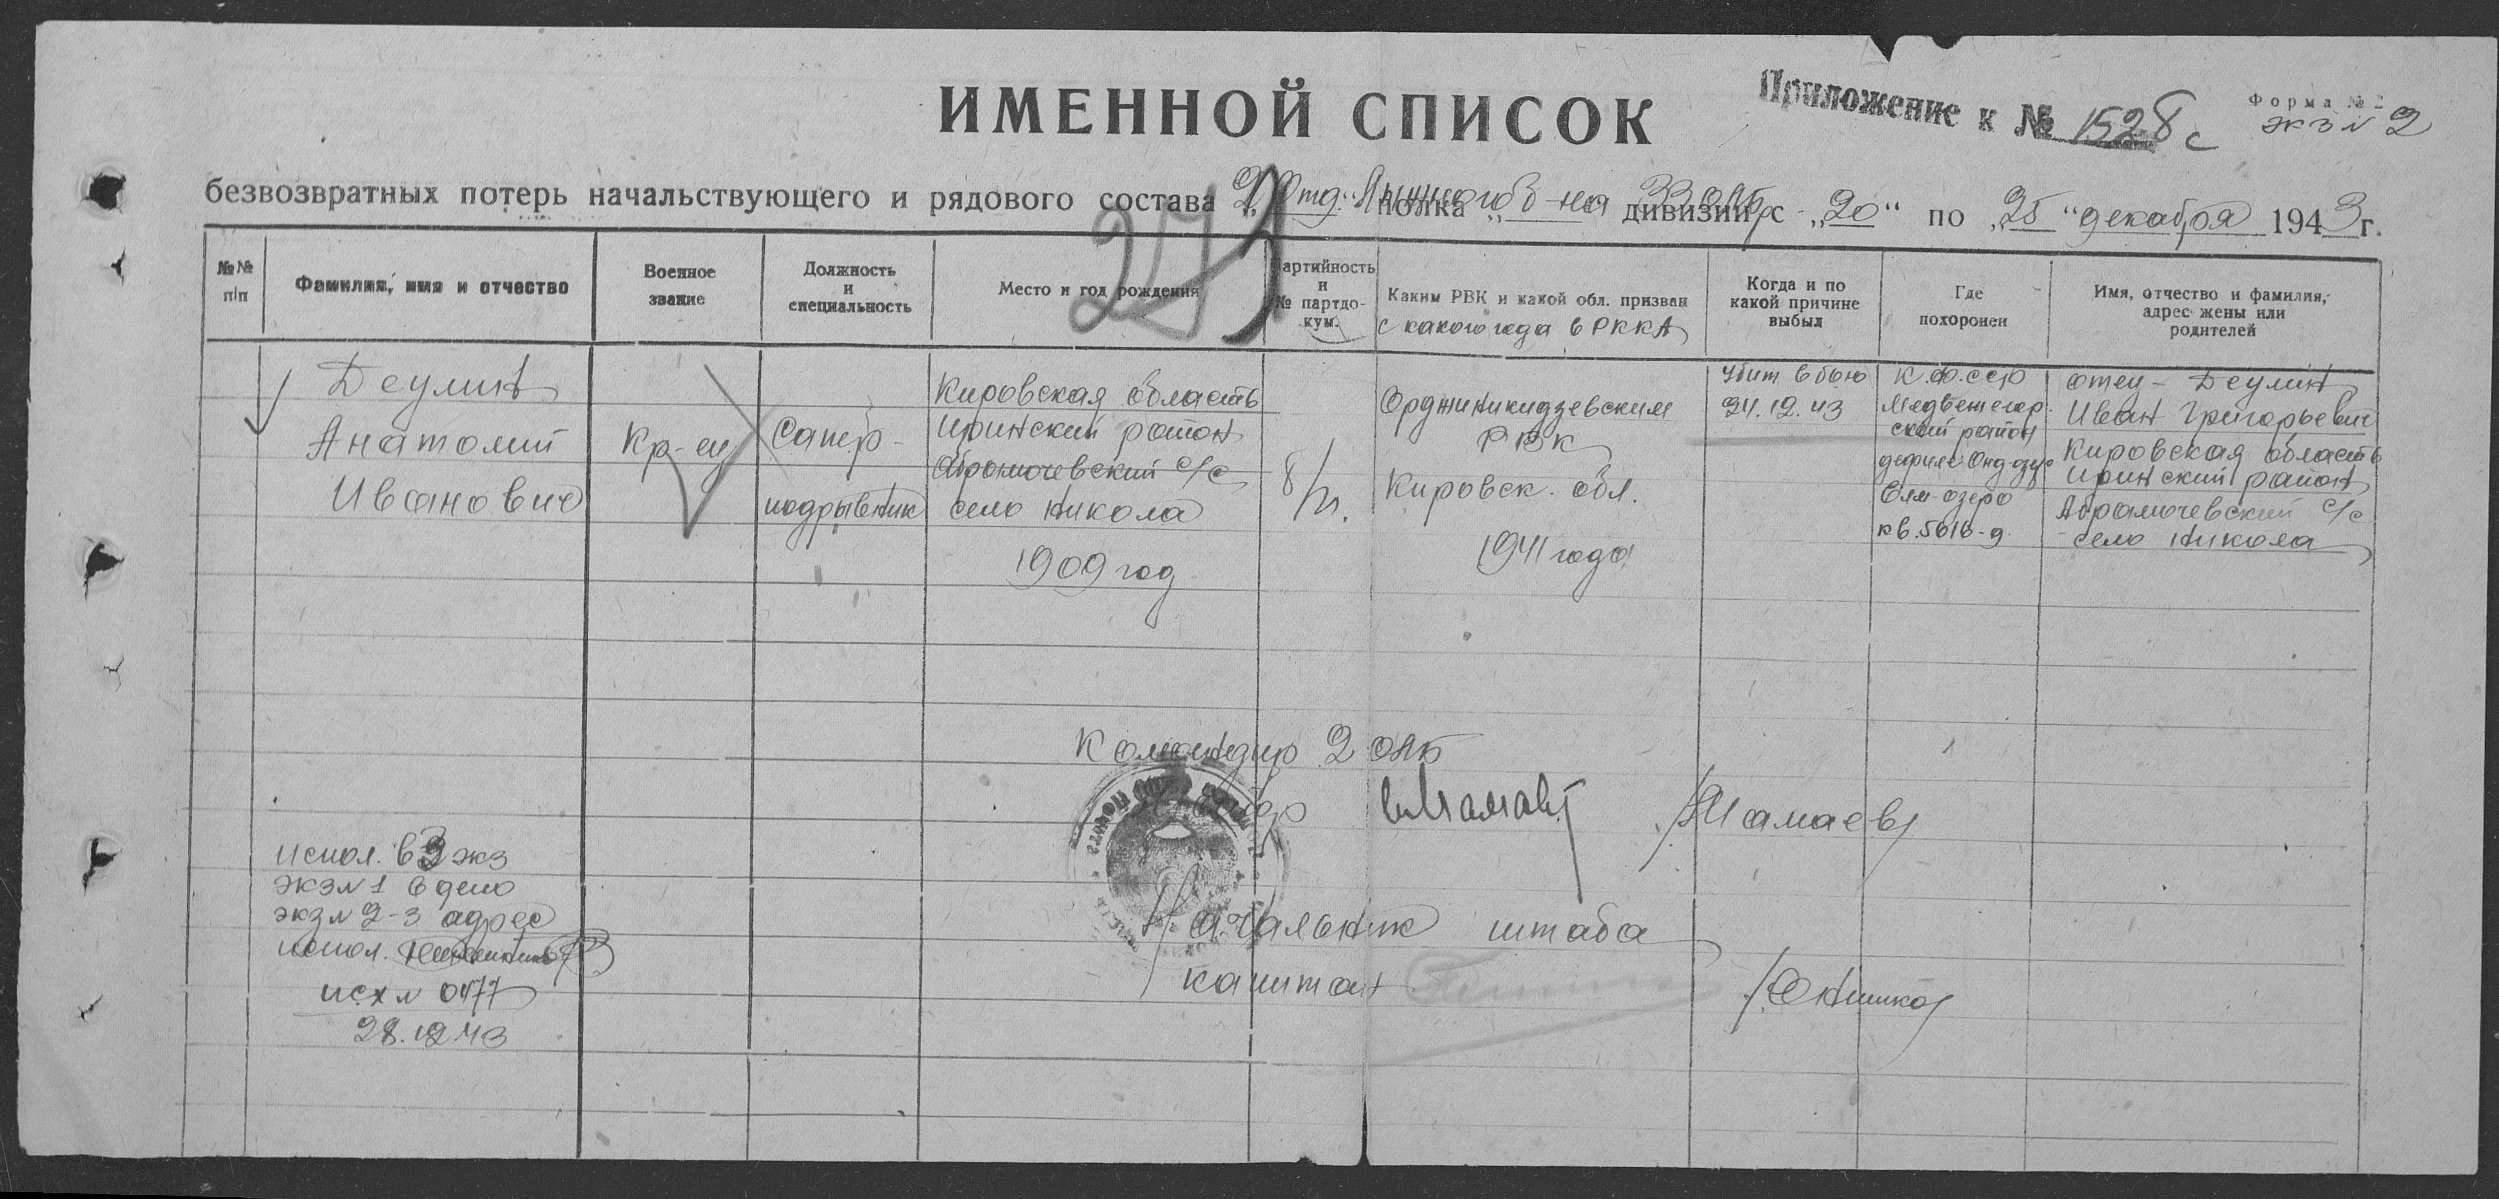 ИМЕННОЙ СПИСОК
Приложение к № 1528с
Форма № 2
экз № 2
безвозвратных потерь начальствующего и рядового состава „2 Отд." полка дивизии с „20“ по „25“ декабря 1943 г.
№№ п/п
Фамилия, имя и отчество
Военное звание
Должность и специальность
Место и год рождения
артийность и № партдо-кум.
Каким РВК и какой обл. призван
с какого года в РККА
Когда и по какой причине выбыл
Где похоронен
Имя, отчество и фамилия, адрес жены или родителей
Деулин
Анатолий
Иванович
Кр-ец
Сапер-
подрывник
Кировская область
село Никола
1909 год
б/п.
Орджиникидзевским
РВК
Кировск. обл.
1941 года
Убит в бою
24.12.43
К.Ф.ССР
Медвежегор-
ский район
озеро
кв. 5616-д.
отец - Деулин
Иван Григорьевич
Кировская область
район
с/с
село Никола
Командир 2
/Шамаев/
Начальник штаба
капитан
испол. в 3 экз
экз № 1 в дело
экз № 2-3 адрес
испол.
исх № 0477
28.12.43